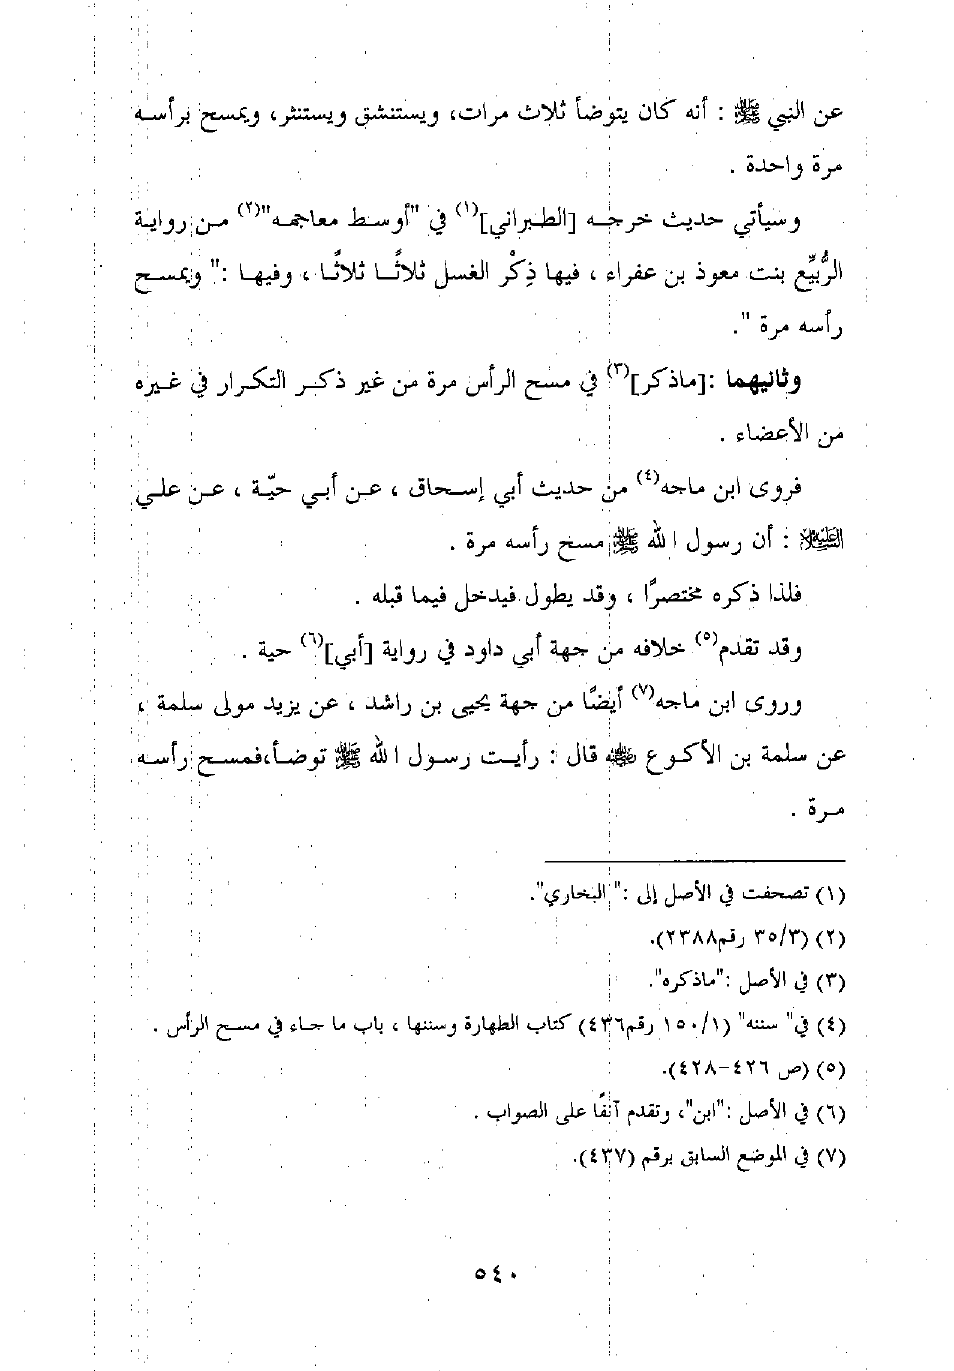 عن النبي ﷺ : أنه كان يتوضأ ثلاث مرات، ويستنشق ويستنثر، ويمسح برأسه
مرة واحدة .
وسيأتي حديث خرجه [الطبراني](١) في "أوسط معاجمه"(٢) من رواية
الرُّبَيِّع بنت معوذ بن عفراء ، فيها ذِكْر الغسل ثلاثًا ثلاثًا ، وفيها :" ويمسح
رأسه مرة ".
وثانيهما :[ماذكر](٣) في مسح الرأس مرة من غير ذكر التكرار في غيره
من الأعضاء .
فروى ابن ماجه(٤) من حديث أبي إسحاق ، عن أبي حيّة ، عن علي
العَلَيْهِ السَّلام : أن رسول الله ﷺ مسح رأسه مرة .
فلذا ذكره مختصرًا ، وقد يطول فيدخل فيما قبله .
وقد تقدم(٥) خلافه من جهة أبي داود في رواية [أبي](٦) حية .
وروى ابن ماجه(٧) أيضًا من جهة يحيى بن راشد ، عن يزيد مولى سلمة ،
عن سلمة بن الأكوع ﷺ قال : رأيت رسول الله ﷺ توضأ،فمسح رأسه
مرة .
(١) تصحفت في الأصل إلى :" البخاري".
(٢) (٣٥/٣ رقم٢٣٨٨).
(٣) في الأصل :"ماذكره".
(٤) في" سننه" (١٥٠/١ رقم٤٣٦) كتاب الطهارة وسننها ، باب ما جاء في مسح الرأس .
(٥) (ص ٤٢٦-٤٢٨).
(٦) في الأصل :"ابن"، وتقدم آنفًا على الصواب .
(٧) في الموضع السابق برقم (٤٣٧).
٥٤٠